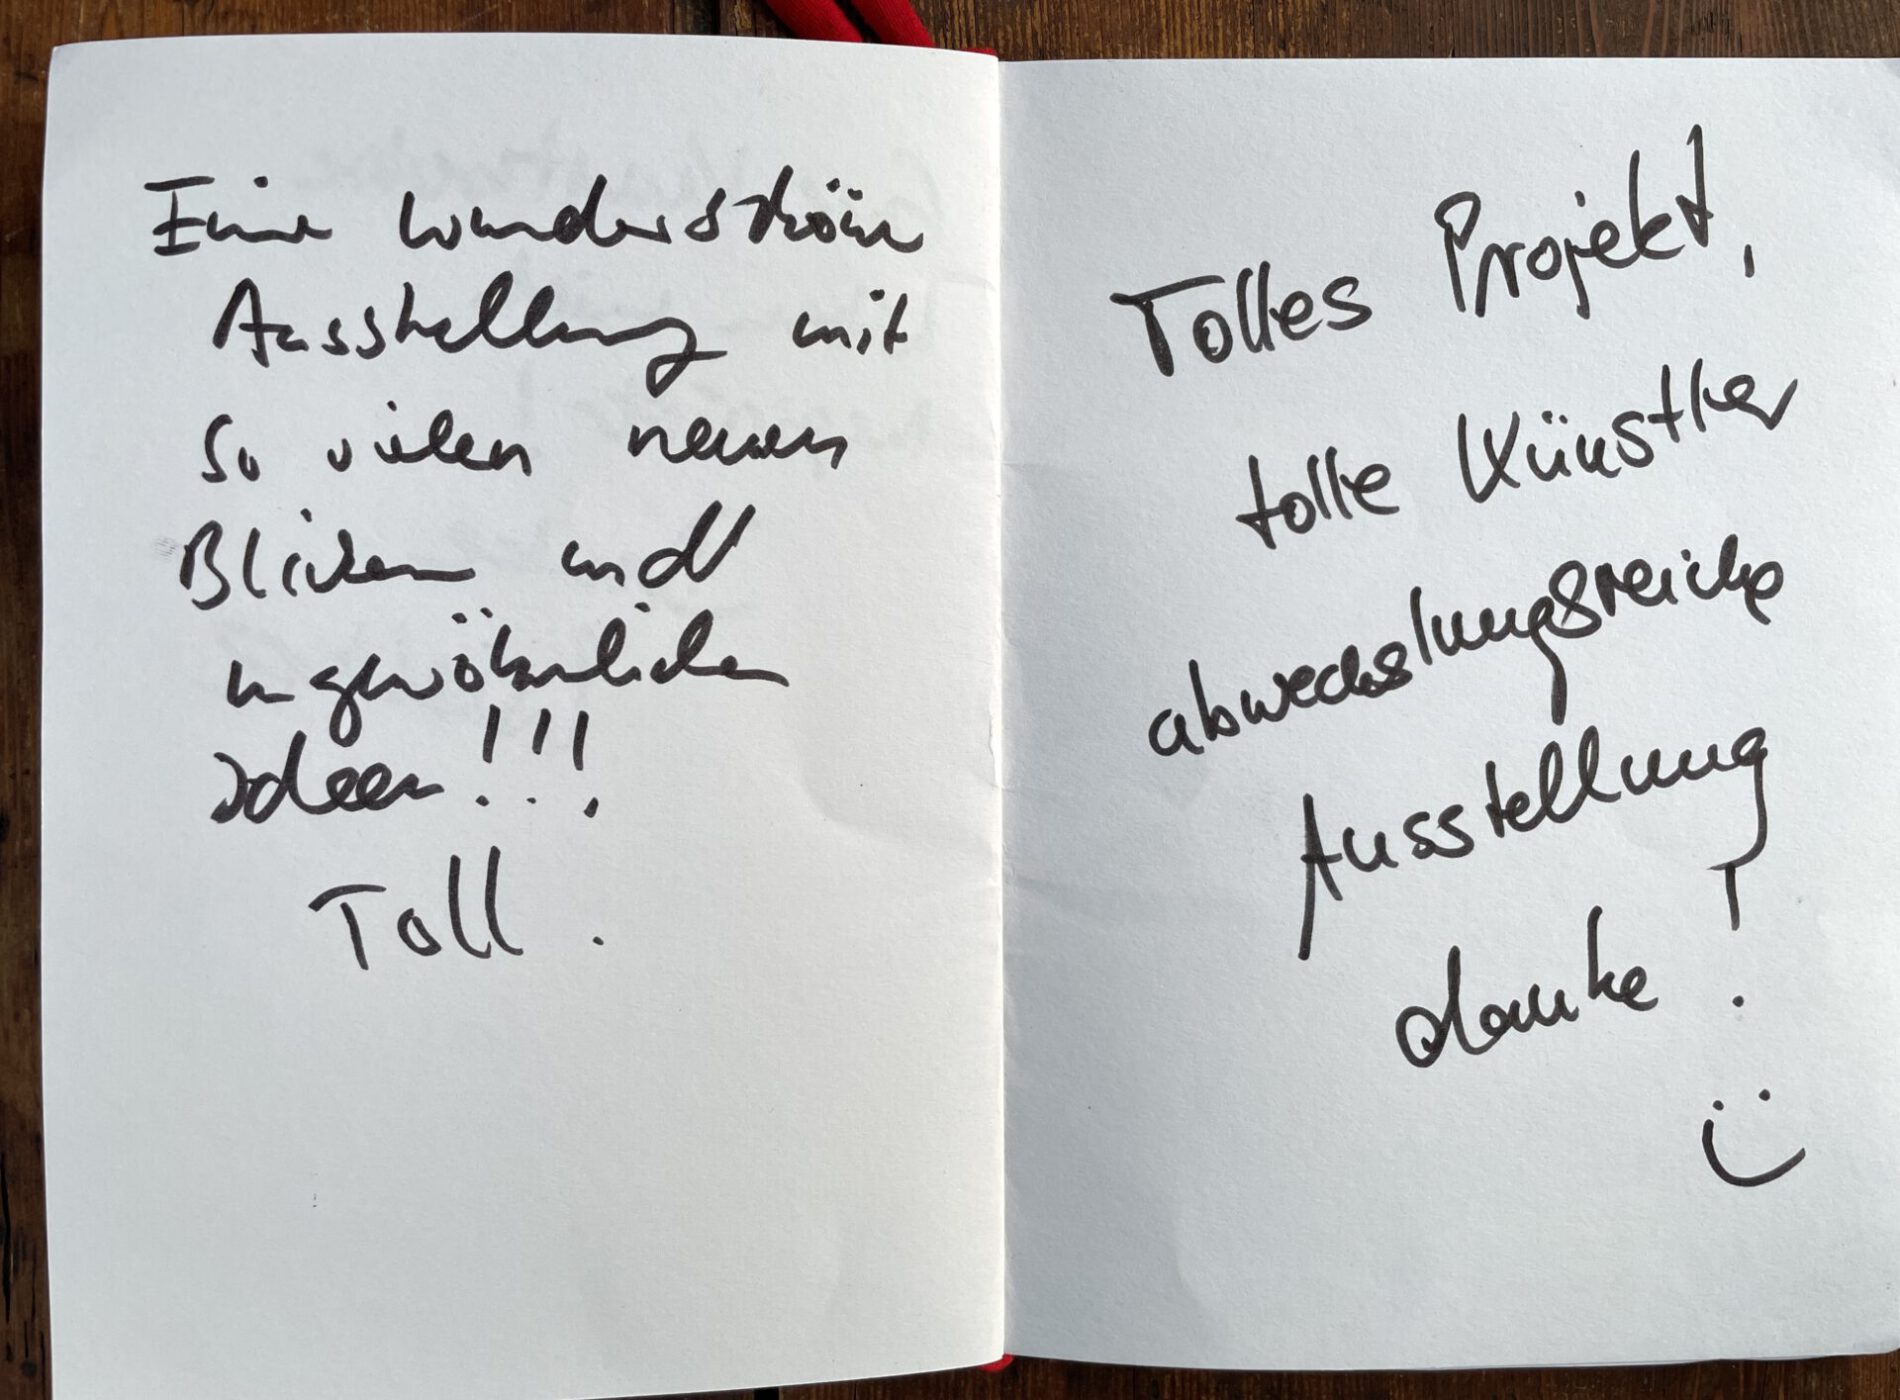 Eine wunderschöne
Ausstellung mit
so vielen neuen
Blicken und
ungewöhnlichen
Ideen!!!
Toll.
Tolles Projekt,
tolle Künstler
abwechslungsreiche
Ausstellung
danke!